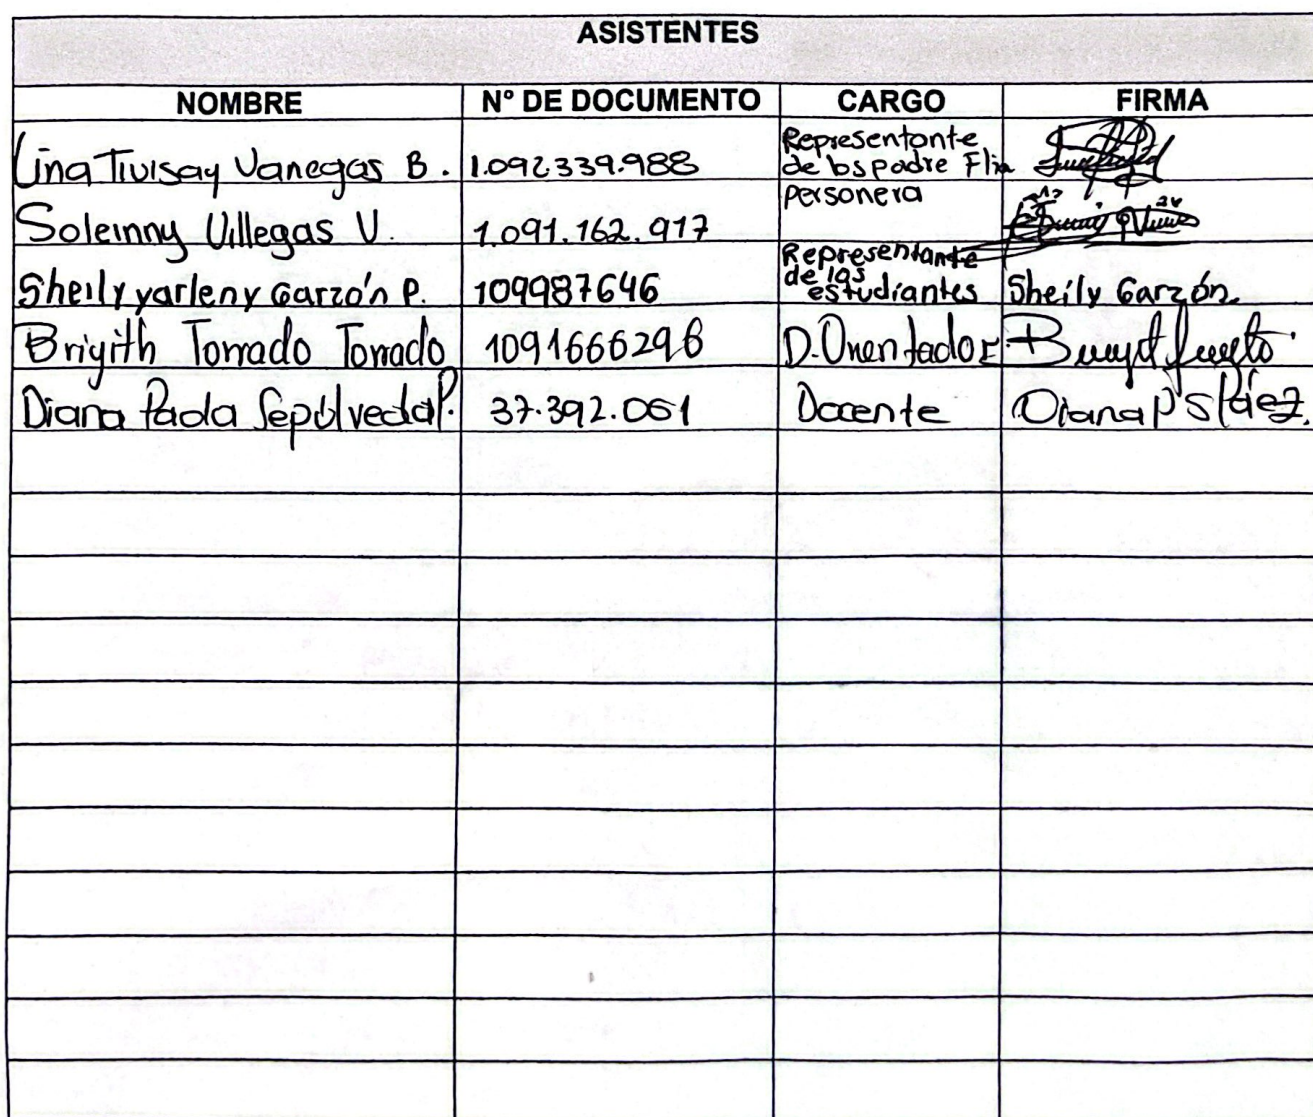 ASISTENTES
NOMBRE Nº DE DOCUMENTO CARGO FIRMA
Lina Tivisay Vanegas B. 1.092339.988 Representante de los padre Flia
Soleinny Villegas V. 1.091.162.917 personera
Sheily yarleny Garzón P. 109987646 Representante de los estudiantes Sheily Garzón.
Brigith Torrado Torrado 1091666296 D.Orientador
Diana Paola Sepúlveda P. 37.392.051 Docente Diana P S Páez.